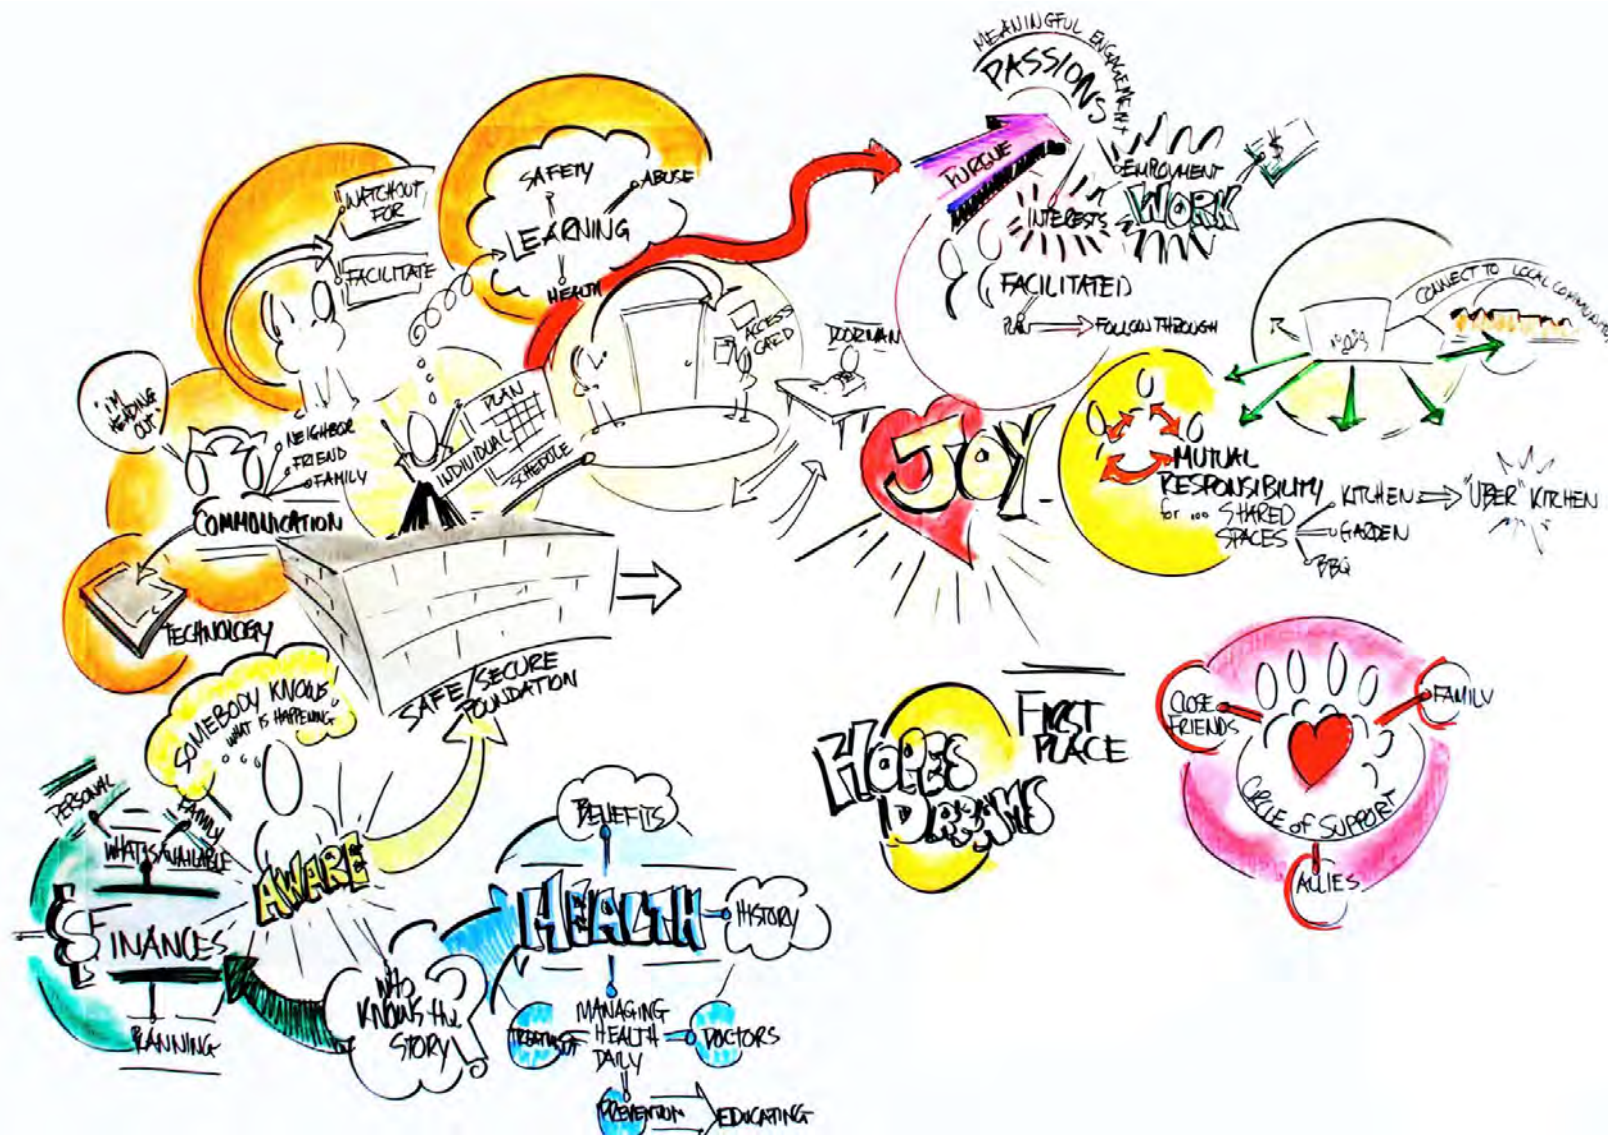 MEANINGFUL ENGAGEMENT
PASSIONS
PURGUE
EMPLOYMENT
WORK
$
INTERESTS
FACILITATED
PLAN
FOLLOW THROUGH
WATCHOUT
FOR
FACILITATE
SAFETY
ABUSE
LEARNING
HEALTH
ACCESS
CARD
DOORMAN
CONNECT TO LOCAL COMMUNITIES
"I'M
HEADING
OUT"
NEIGHBOR
FRIEND
FAMILY
COMMUNICATION
TECHNOLOGY
PLAN
INDIVIDUAL
SCHEDULE
SAFE/SECURE
FOUNDATION
JOY
MUTUAL
RESPONSIBILITY
for ... SHARED
SPACES
KITCHEN
"UBER" KITCHEN
GARDEN
BBQ
SOMEBODY KNOWS
WHAT IS HAPPENING
AWARE
PERSONAL
FAMILY
WHAT IS AVAILABLE
$
FINANCES
PLANNING
WHO
KNOWS the
STORY?
BENEFITS
HEALTH
HISTORY
MANAGING
HEALTH
DAILY
DOCTORS
PREVENTION
EDUCATING
HOPES
DREAMS
FIRST
PLACE
CLOSE
FRIENDS
FAMILY
CIRCLE of SUPPORT
ALLIES